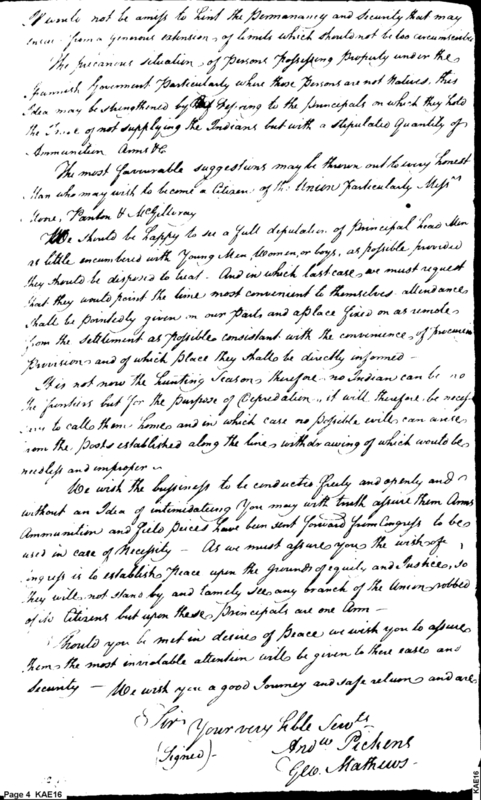 It would not be amiss to hint the Permanancy and Security that may
ensue from a generous extension of limits which should not be too circumscribed
The precarious situation of Persons Possessing Property under the
Spanish Goverment Particularly where those Persons are not Natives. this
Idea may be strengthened by Refering to the principals on which they hold
the of not supplying the Indians but with a stepulated Quantity of
Ammunition Arms &c
The most favourable suggestions may be thrown out to every honest
Man who may wish to become a Citizen of the Union Particularly Messrs
Stone, Panton & McGillvray
We should be happy to see a full deputation of Principal head Men
as little encumbered with Young Men Women, or boys, as possible provided
they should be disposed to treat. And in which last case, we must request
that they would point the time most convenient to themselves. attendance
shall be pointedly given on our Parts and a place fixed on as remote
from the settlement as possible consistant with the convenience of procureing
Provisions and of which place they shall be directly informed —
It is not now the hunting Season therefore no Indian can be
the frontiers but for the purpose of Depredation. it will therefore be neces
to call them home and in which case no possible evills can arise
from the Posts established along the line withdrawing of which would be
needless and improper —
We wish the bussiness to be conducted freely and openly and
without an Idea of intimidateing You may with truth assure them Arms
Ammunition and field pieces have been sent forward from Congress to be
used in case of Necessity — As we must assure you the wish of
ongress is to establish Peace upon the Grounds of equity and Justice, so
they will not stand by, and tamely see any branch of the Union robbed
of its Citizens but upon these Principals are one Arm —
Should you be met in desires of Peace we wish you to assure
them the most inviolable attention will be given to there ease and
Security — We wish you a good Journey and safe return and are
Sir Your very hble Servts
(Signed) Andw Pickens
Geo. Mathews
Page 4 KAE16
KAE16